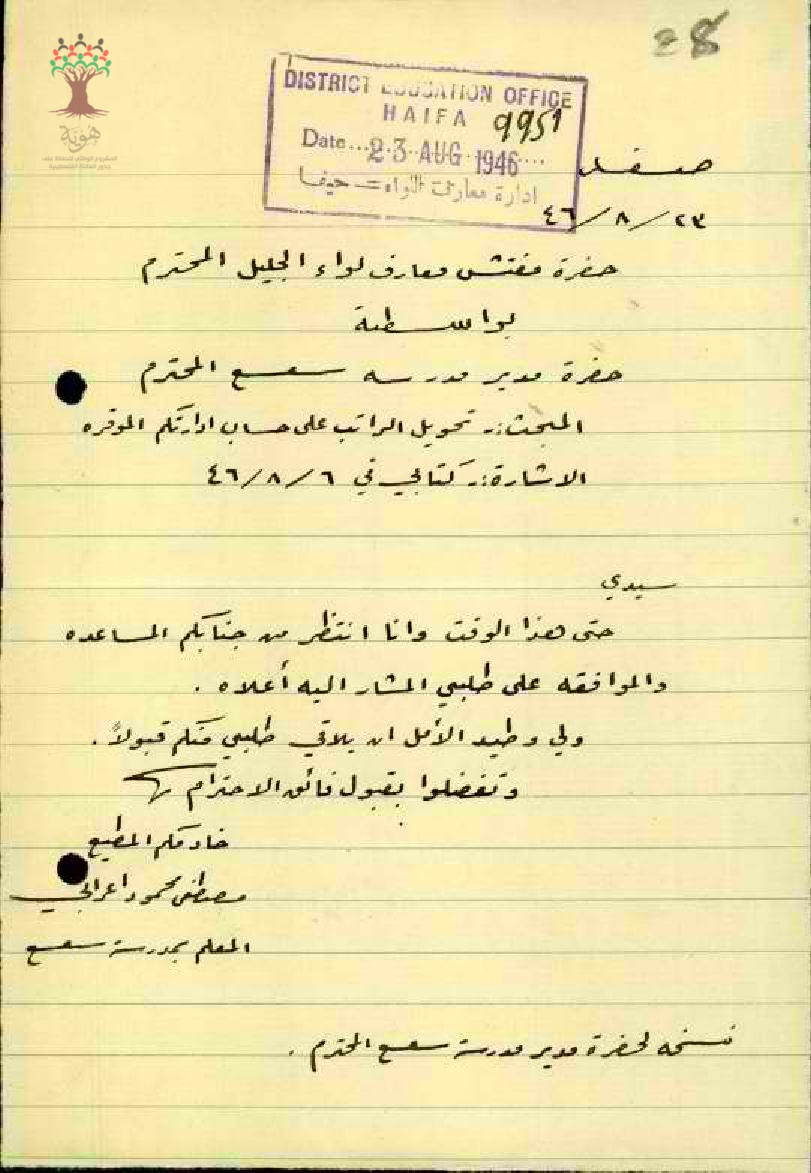 28
هوية
المشروع الوطني للحفاظ على
جذور العائلة الفلسطينية
DISTRICT EDUCATION OFFICE
HAIFA
9951
Date... 23 AUG 1946 ....
ادارة معارف اللواء = حيفا
٢٣ / ٨ / ٤٦
حضرة مفتش معارف لواء الجليل المحترم
بواسطة
حضرة مدير مدرسه سعسع المحترم
المبحث :- تحويل الراتب على حساب ادارتكم الموقره
الاشارة :- كتابي في ٦ / ٨ / ٤٦
سيدي
حتى هذا الوقت وانا انتظر من جنابكم المساعده
والموافقه على طلبي المشار اليه أعلاه .
ولي وطيد الأمل ان يلاقي طلبي منكم قبولاً .
وتفضلوا بقبول فائق الاحترام
خادمكم المطيع
مصطفى محمود اعرابي
المعلم بمدرسة سعسع
نسخه لحضرة مدير مدرسة سعسع المحترم .